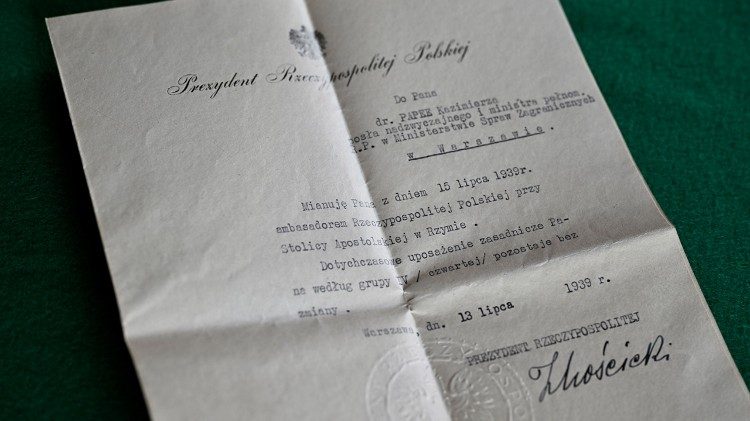 Prezydent Rzeczypospolitej Polskiej
Do Pana
dr. PAPEE Kazimierza
posła nadzwyczajnego i ministra pełnom.
R.P. w Ministerstwie Spraw Zagranicznych
w Warszawie.
Mianuję Pana z dniem 15 lipca 1939r.
ambasadorem Rzeczypospolitej Polskiej przy
Stolicy Apostolskiej w Rzymie .
Dotychczasowe uposażenie zasadnicze Pa-
na według grupy IV / czwartej/ pozostaje bez
zmiany .
Warszawa, dn. 13 lipca 1939 r.
PREZYDENT RZECZYPOSPOLITEJ
IMościcki